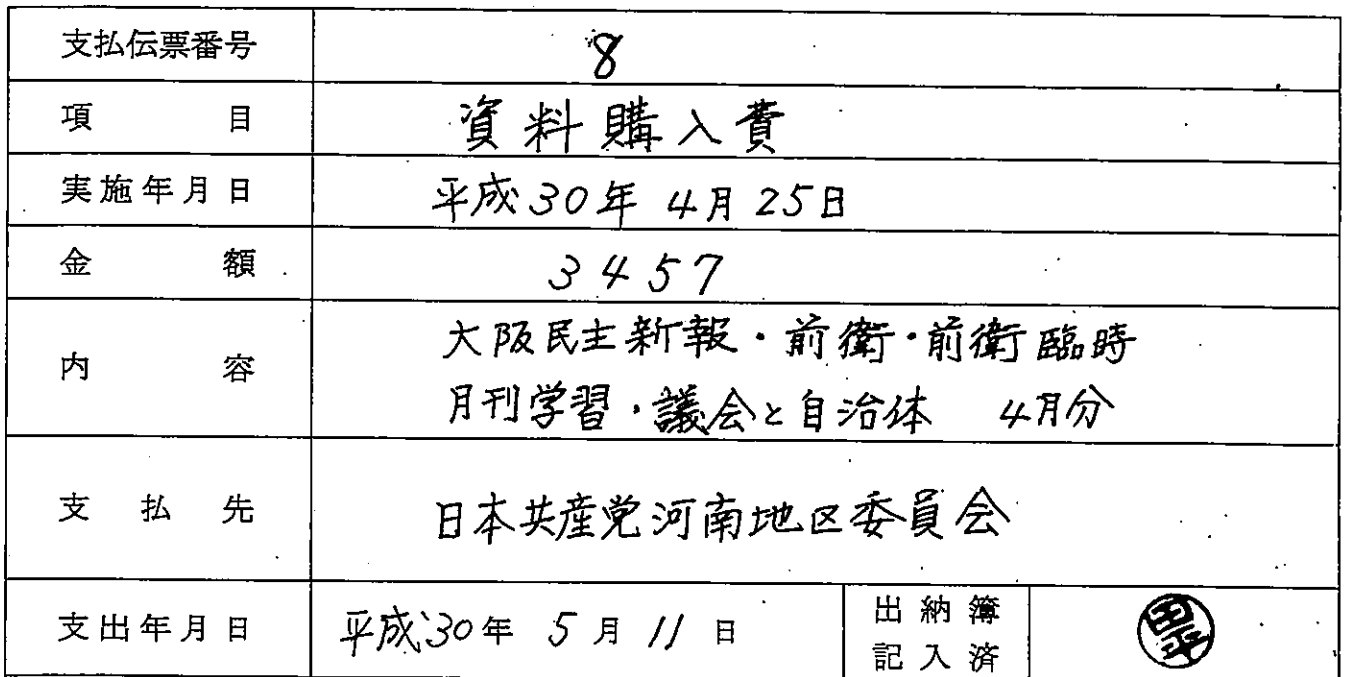 支払伝票番号 8
項目 資料購入費
実施年月日 平成30年 4月25日
金額 3457
内容 大阪民主新報・前衛・前衛臨時
月刊学習・議会と自治体 4月分
支払先 日本共産党河南地区委員会
支出年月日 平成30年 5月11日 出納簿
記入済